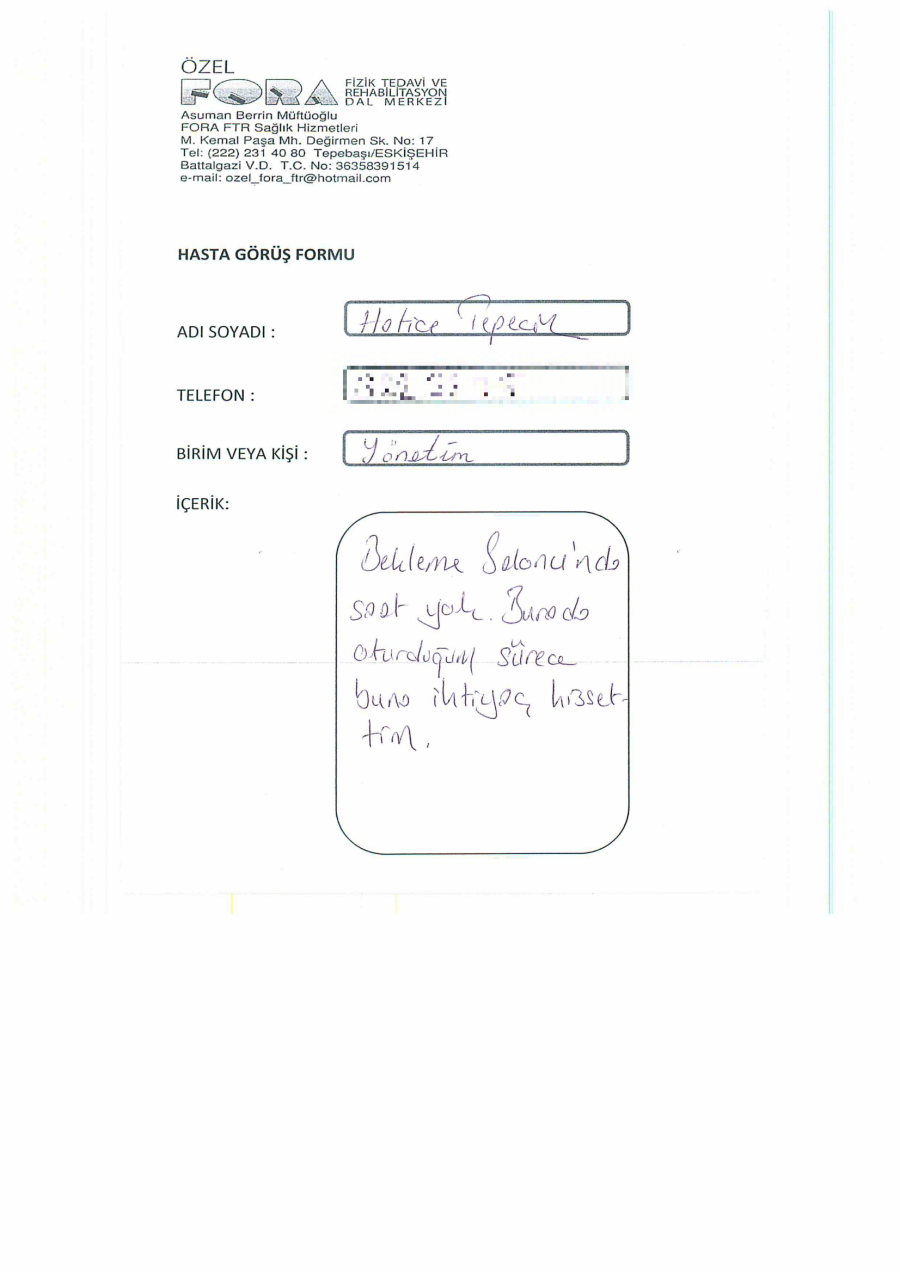 ÖZEL
FORA FİZİK TEDAVİ VE
REHABİLİTASYON
DAL MERKEZİ
Asuman Berrin Müftüoğlu
FORA FTR Sağlık Hizmetleri
M. Kemal Paşa Mh. Değirmen Sk. No: 17
Tel: (222) 231 40 80 Tepebaşı/ESKİŞEHİR
Battalgazi V.D. T.C. No: 36358391514
e-mail: ozel_fora_ftr@hotmail.com
HASTA GÖRÜŞ FORMU
ADI SOYADI : Hatice
TELEFON :
BİRİM VEYA KİŞİ : Yönetim
İÇERİK:
Bekleme Salonu'nda
saat yok. Burada
oturduğum sürece
buna ihtiyaç hisset-
tim.